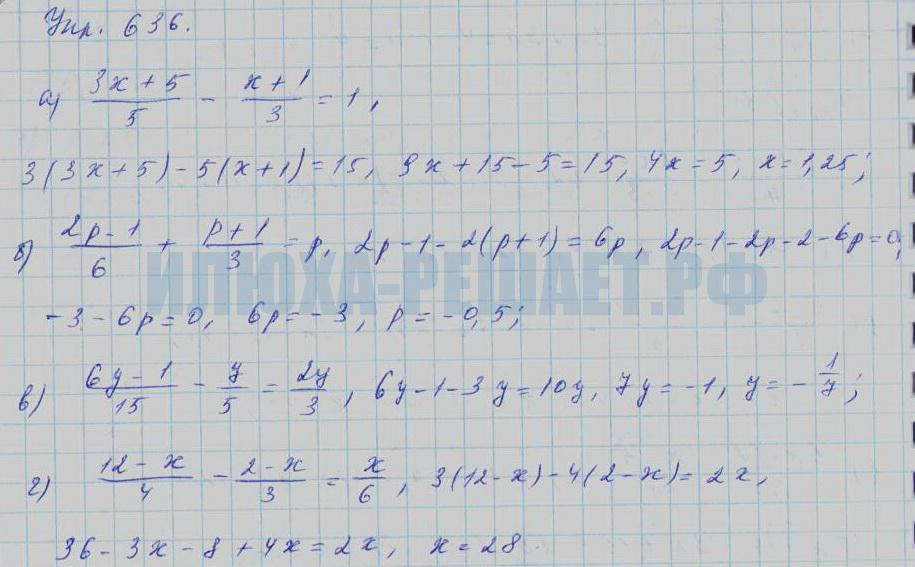 Упр. 636.
а) (3x + 5)/5 - (x + 1)/3 = 1,
3(3x + 5) - 5(x + 1) = 15, 9x + 15 - 5 = 15, 4x = 5, x = 1,25;
б) (2p - 1)/6 + (p + 1)/3 = p, 2p - 1 - 2(p + 1) = 6p, 2p - 1 - 2p - 2 - 6p = 0,
ИЛЮХА-РЕШАЕТ.РФ
-3 - 6p = 0, 6p = -3, p = -0,5;
в) (6y - 1)/15 - y/5 = 2y/3, 6y - 1 - 3y = 10y, 7y = -1, y = -1/7;
г) (12 - x)/4 - (2 - x)/3 = x/6, 3(12 - x) - 4(2 - x) = 2x,
36 - 3x - 8 + 4x = 2x, x = 28